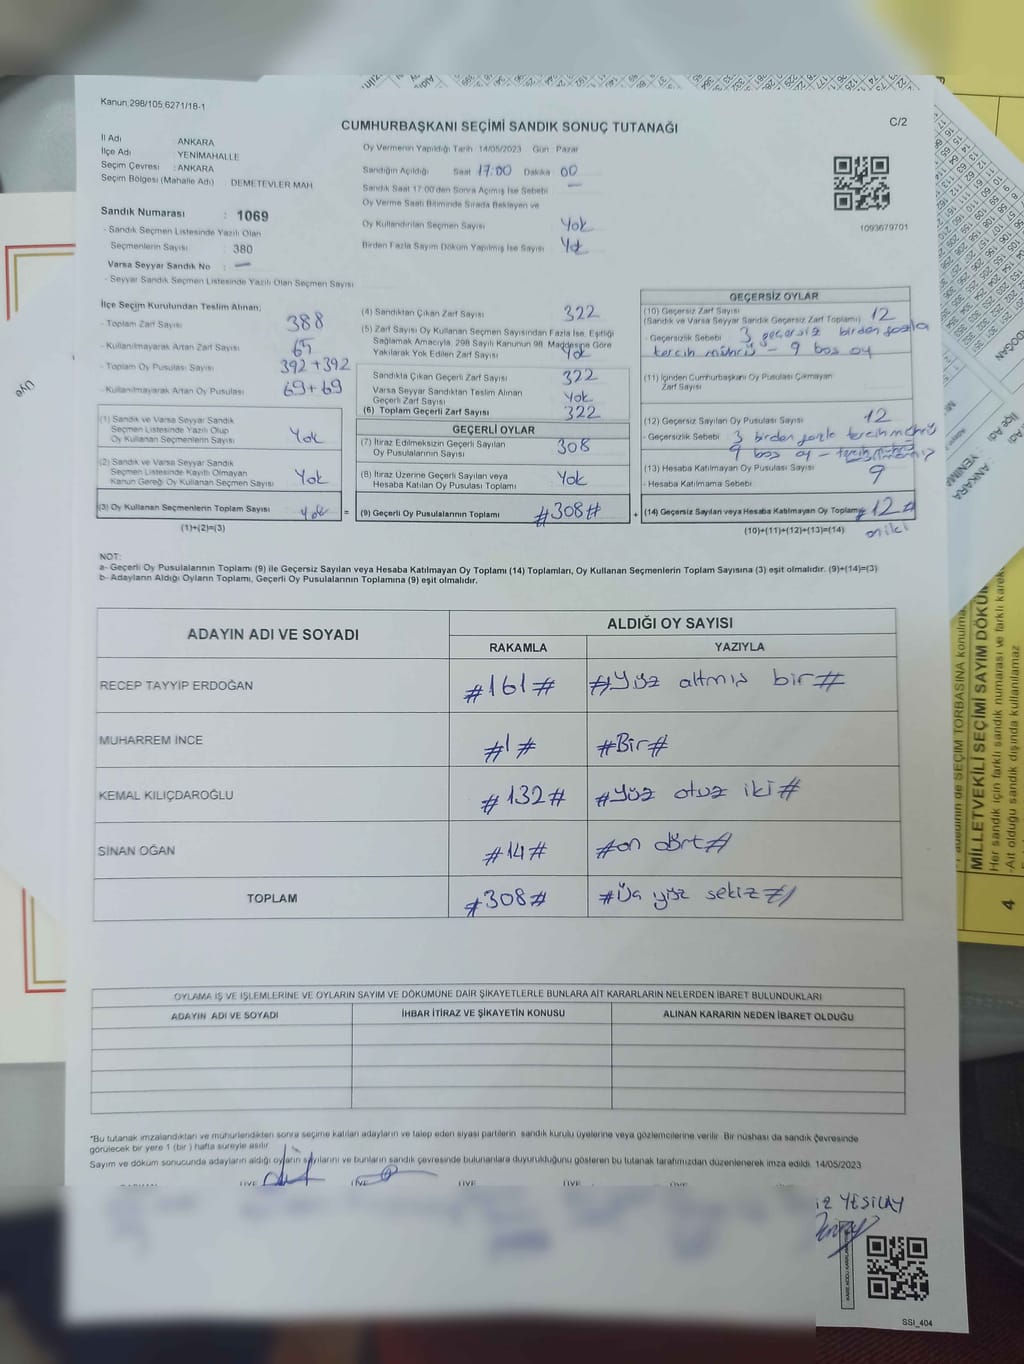 Kanun,298/105,6271/18-1
CUMHURBAŞKANI SEÇİMİ SANDIK SONUÇ TUTANAĞI
C/2
İl Adı ANKARA
İlçe Adı YENİMAHALLE
Seçim Çevresi : ANKARA
Seçim Bölgesi (Mahalle Adı) DEMETEVLER MAH
Sandık Numarası : 1069
- Sandık Seçmen Listesinde Yazılı Olan
Seçmenlerin Sayısı : 380
Varsa Seyyar Sandık No : —
- Seyyar Sandık Seçmen Listesinde Yazılı Olan Seçmen Sayısı
Oy Vermenin Yapıldığı Tarih : 14/05/2023 Gün : Pazar
Sandığın Açıldığı Saat 17:00 Dakika 00
Sandık Saat 17.00'den Sonra Açılmış İse Sebebi —
Oy Verme Saati Bitiminde Sırada Bekleyen ve
Oy Kullandırılan Seçmen Sayısı Yok
Birden Fazla Sayım Döküm Yapılmış İse Sayısı Yok
1093679701
İlçe Seçim Kurulundan Teslim Alınan;
- Toplam Zarf Sayısı 388
- Kullanılmayarak Artan Zarf Sayısı 65
- Toplam Oy Pusulası Sayısı 392+392
- Kullanılmayarak Artan Oy Pusulası 69+69
(1) Sandık ve Varsa Seyyar Sandık
Seçmen Listesinde Yazılı Olup
Oy Kullanan Seçmenlerin Sayısı Yok
(2) Sandık ve Varsa Seyyar Sandık
Seçmen Listesinde Kayıtlı Olmayan
Kanun Gereği Oy Kullanan Seçmen Sayısı Yok
(3) Oy Kullanan Seçmenlerin Toplam Sayısı Yok =
(1)+(2)=(3)
(4) Sandıktan Çıkan Zarf Sayısı 322
(5) Zarf Sayısı Oy Kullanan Seçmen Sayısından Fazla İse, Eşitliği
Sağlamak Amacıyla, 298 Sayılı Kanunun 98. Maddesine Göre
Yakılarak Yok Edilen Zarf Sayısı Yok
Sandıkta Çıkan Geçerli Zarf Sayısı 322
Varsa Seyyar Sandıktan Teslim Alınan
Geçerli Zarf Sayısı Yok
(6) Toplam Geçerli Zarf Sayısı 322
GEÇERLİ OYLAR
(7) İtiraz Edilmeksizin Geçerli Sayılan
Oy Pusulalarının Sayısı 308
(8) İtiraz Üzerine Geçerli Sayılan veya
Hesaba Katılan Oy Pusulası Toplamı Yok
(9) Geçerli Oy Pusulalarının Toplamı #308# +
GEÇERSİZ OYLAR
(10) Geçersiz Zarf Sayısı
(Sandık ve Varsa Seyyar Sandık Geçersiz Zarf Toplamı) 12
- Geçersizlik Sebebi 3 geçersiz birden fazla
tercih mührü - 9 boş oy
(11) İçinden Cumhurbaşkanı Oy Pusulası Çıkmayan
Zarf Sayısı
(12) Geçersiz Sayılan Oy Pusulası Sayısı 12
- Geçersizlik Sebebi 3 birden fazla tercih mührü
9 boş oy -
(13) Hesaba Katılmayan Oy Pusulası Sayısı 9
- Hesaba Katılmama Sebebi
(14) Geçersiz Sayılan veya Hesaba Katılmayan Oy Toplamı #12#
(10)+(11)+(12)+(13)=(14) oniki
NOT:
a- Geçerli Oy Pusulalarının Toplamı (9) ile Geçersiz Sayılan veya Hesaba Katılmayan Oy Toplamı (14) Toplamları, Oy Kullanan Seçmenlerin Toplam Sayısına (3) eşit olmalıdır. (9)+(14)=(3)
b- Adayların Aldığı Oyların Toplamı, Geçerli Oy Pusulalarının Toplamına (9) eşit olmalıdır.
ADAYIN ADI VE SOYADI
ALDIĞI OY SAYISI
RAKAMLA YAZIYLA
RECEP TAYYİP ERDOĞAN #161# #Yüz altmış bir#
MUHARREM İNCE #1# #Bir#
KEMAL KILIÇDAROĞLU #132# #Yüz otuz iki#
SİNAN OĞAN #14# #on dört#
TOPLAM #308# #Üç yüz sekiz#
OYLAMA İŞ VE İŞLEMLERİNE VE OYLARIN SAYIM VE DÖKÜMÜNE DAİR ŞİKAYETLERLE BUNLARA AİT KARARLARIN NELERDEN İBARET BULUNDUKLARI
ADAYIN ADI VE SOYADI İHBAR İTİRAZ VE ŞİKAYETİN KONUSU ALINAN KARARIN NEDEN İBARET OLDUĞU
*Bu tutanak imzalandıktan ve mühürlendikten sonra seçime katılan adayların ve talep eden siyasi partilerin sandık kurulu üyelerine veya gözlemcilerine verilir. Bir nüshası da sandık çevresinde
görülecek bir yere 1 (bir) hafta süreyle asılır.
Sayım ve döküm sonucunda adayların aldığı oyların sayılarını ve bunların sandık çevresinde bulunanlara duyurulduğunu gösteren bu tutanak tarafımızdan düzenlenerek imza edildi. 14/05/2023
ÜYE ÜYE ÜYE ÜYE ÜYE
İZ YEŞİLAY
SSİ_404
Üye
MİLLETVEKİLİ SEÇİMİ SAYIM DÖKÜM
Her sandık için farklı sandık numarası ve farklı karek
-Ait olduğu sandık dışında kullanılamaz
4
: ANKARA
YENİM
İlçe Adı
DOĞAN